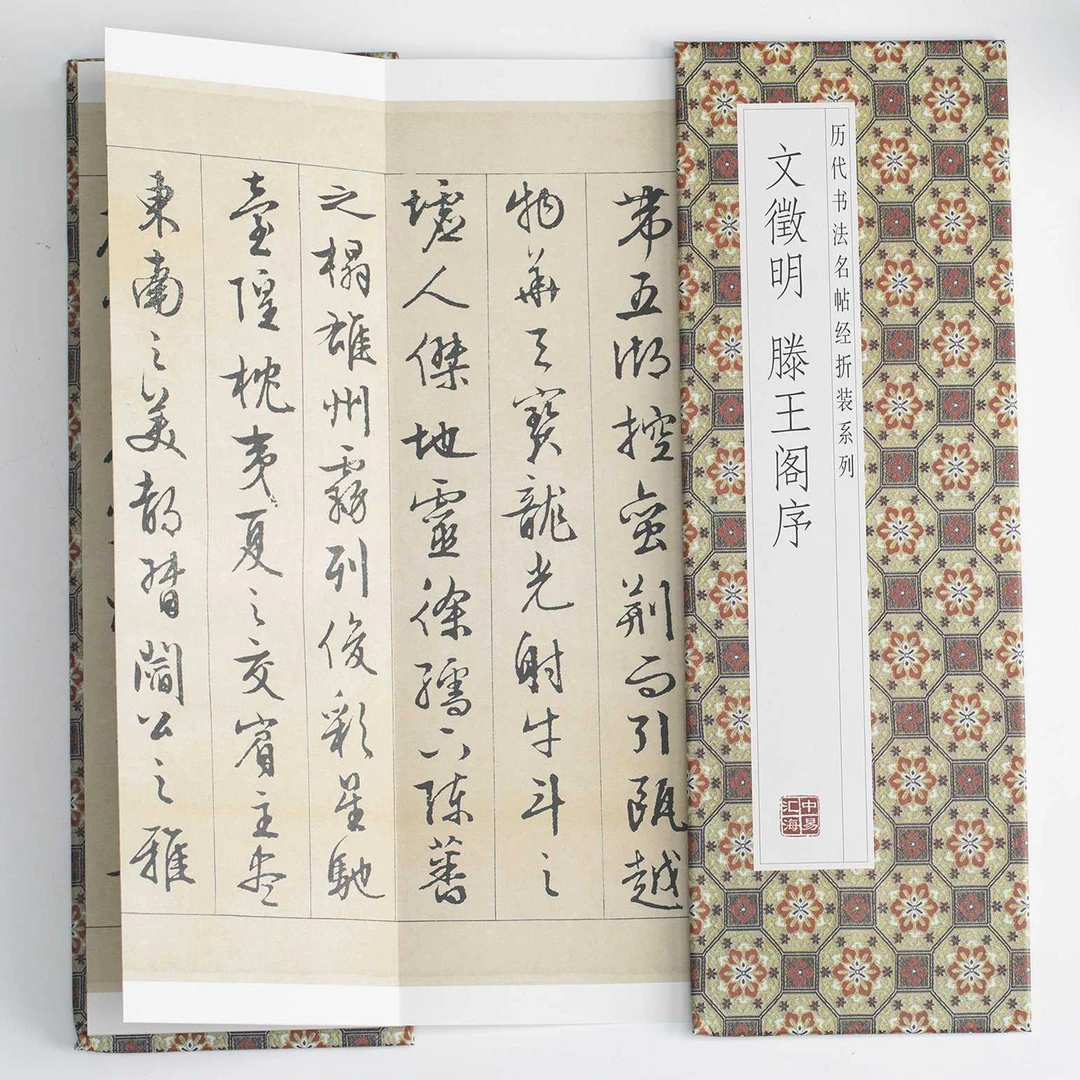 历代书法名帖经折装系列
文徵明 滕王阁序
中易
汇海
帶五湖控蛮荆而引甌越
物華天寶龍光射牛斗之
墟人傑地靈徐孺下陳蕃
之榻雄州霧列俊彩星馳
臺隍枕夷夏之交賓主尽
東南之美都督閻公之雅